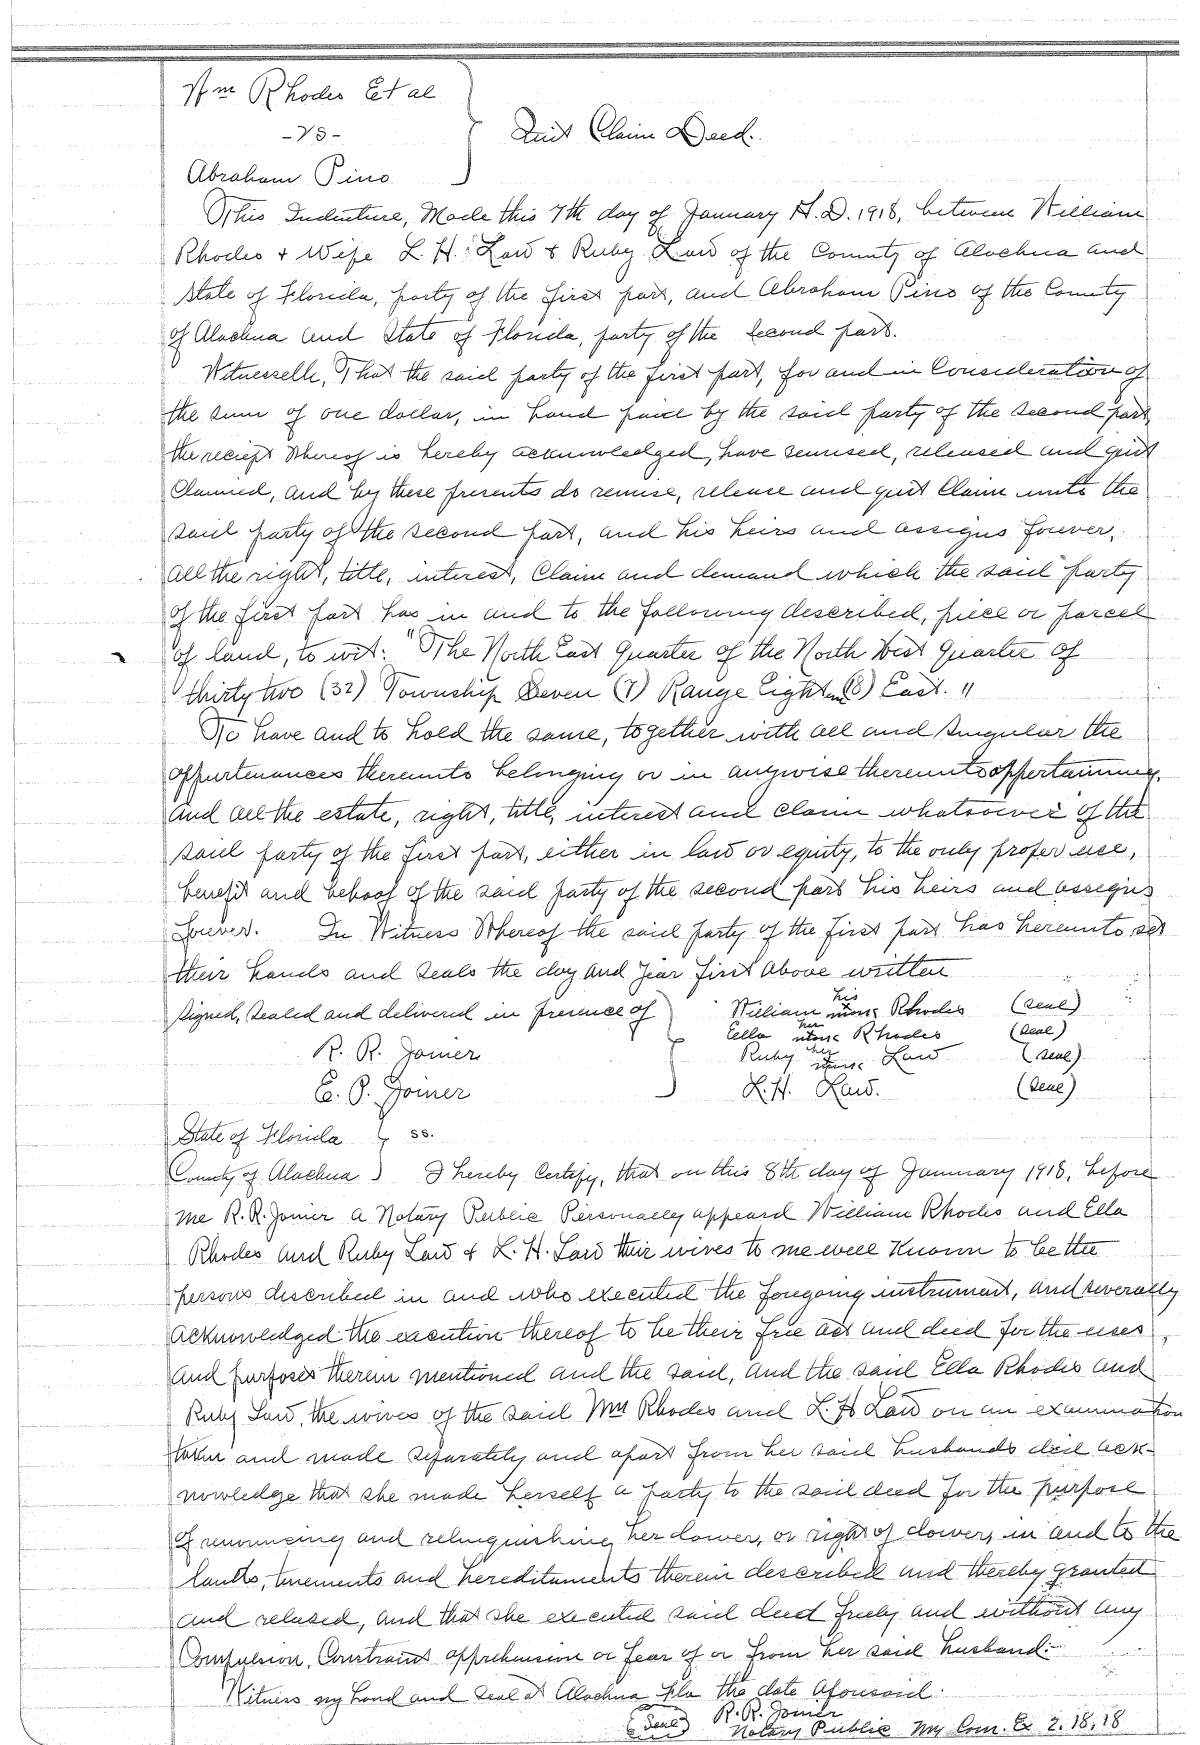 Wm Rhodes Et al
-vs-
Quit Claim Deed.
Abraham Pino
This Indenture, Made this 7th day of January A.D. 1918, between William
Rhodes & Wife L. H. Law & Ruby Law of the County of Alachua and
State of Florida, party of the first part, and Abraham Pino of the County
of Alachua and State of Florida, party of the second part.
Witnesseth, That the said party of the first part, for and in Consideration of
the sum of one dollar, in hand paid by the said party of the second part,
the reciept Whereof is hereby acknowledged, have remised, released and quit
Claimed, and by these presents do remise, release and quit Claim unto the
said party of the second part, and his heirs and assigns forever,
all the right, title, interest, Claim and demand which the said party
of the first part has in and to the following described, piece or parcel
of land, to wit: "The North East Quarter of the North West Quarter of
thirty two (32) Township Seven (7) Range Eighteen (18) East. "
To have and to hold the same, together with all and singular the
appurtenances thereunto belonging or in anywise thereunto appertaining,
and all the estate, right, title, interest and claim whatsoever of the
said party of the first part, either in law or equity, to the only proper use,
benefit and behoof of the said party of the second part his heirs and assigns
forever. In Witness Whereof the said party of the first part has hereunto set
their hands and seals the day and year first above written
signed, sealed and delivered in presence of
William his mark Rhodes (seal)
Ella her mark Rhodes (seal)
R. R. Joiner
Ruby her mark Law (seal)
E. P. Joiner
L. H. Law. (seal)
State of Florida } ss.
County of Alachua ) I hereby Certify, that on this 8th day of January 1918, before
me R. R. Joiner a Notary Public Personally appeard William Rhodes and Ella
Rhodes and Ruby Law & L. H. Law their wives to me well Known to be the
persons described in and who executed the foregoing instrument, and severally
acknowledged the execution thereof to be their free act and deed for the uses
and purposes therein mentioned and the said, and the said Ella Rhodes and
Ruby Law, the wives of the said Wm Rhodes and L. H Law on an examination
taken and made separately and apart from her said husbands did ack-
nowledge that she made herself a party to the said deed for the purpose
of renouncing and relinquishing her dower, or right of dower, in and to the
lands, tenements and hereditaments therein described and thereby granted
and relased, and that she executed said deed freely and without any
Compulsion, Constraint apprehension or fear of or from her said husband.
Witness my hand and seal at Alachua Fla the date aforesaid.
(Seal) R. R. Joiner
Notary Public My Com. Ex 2, 18, 18